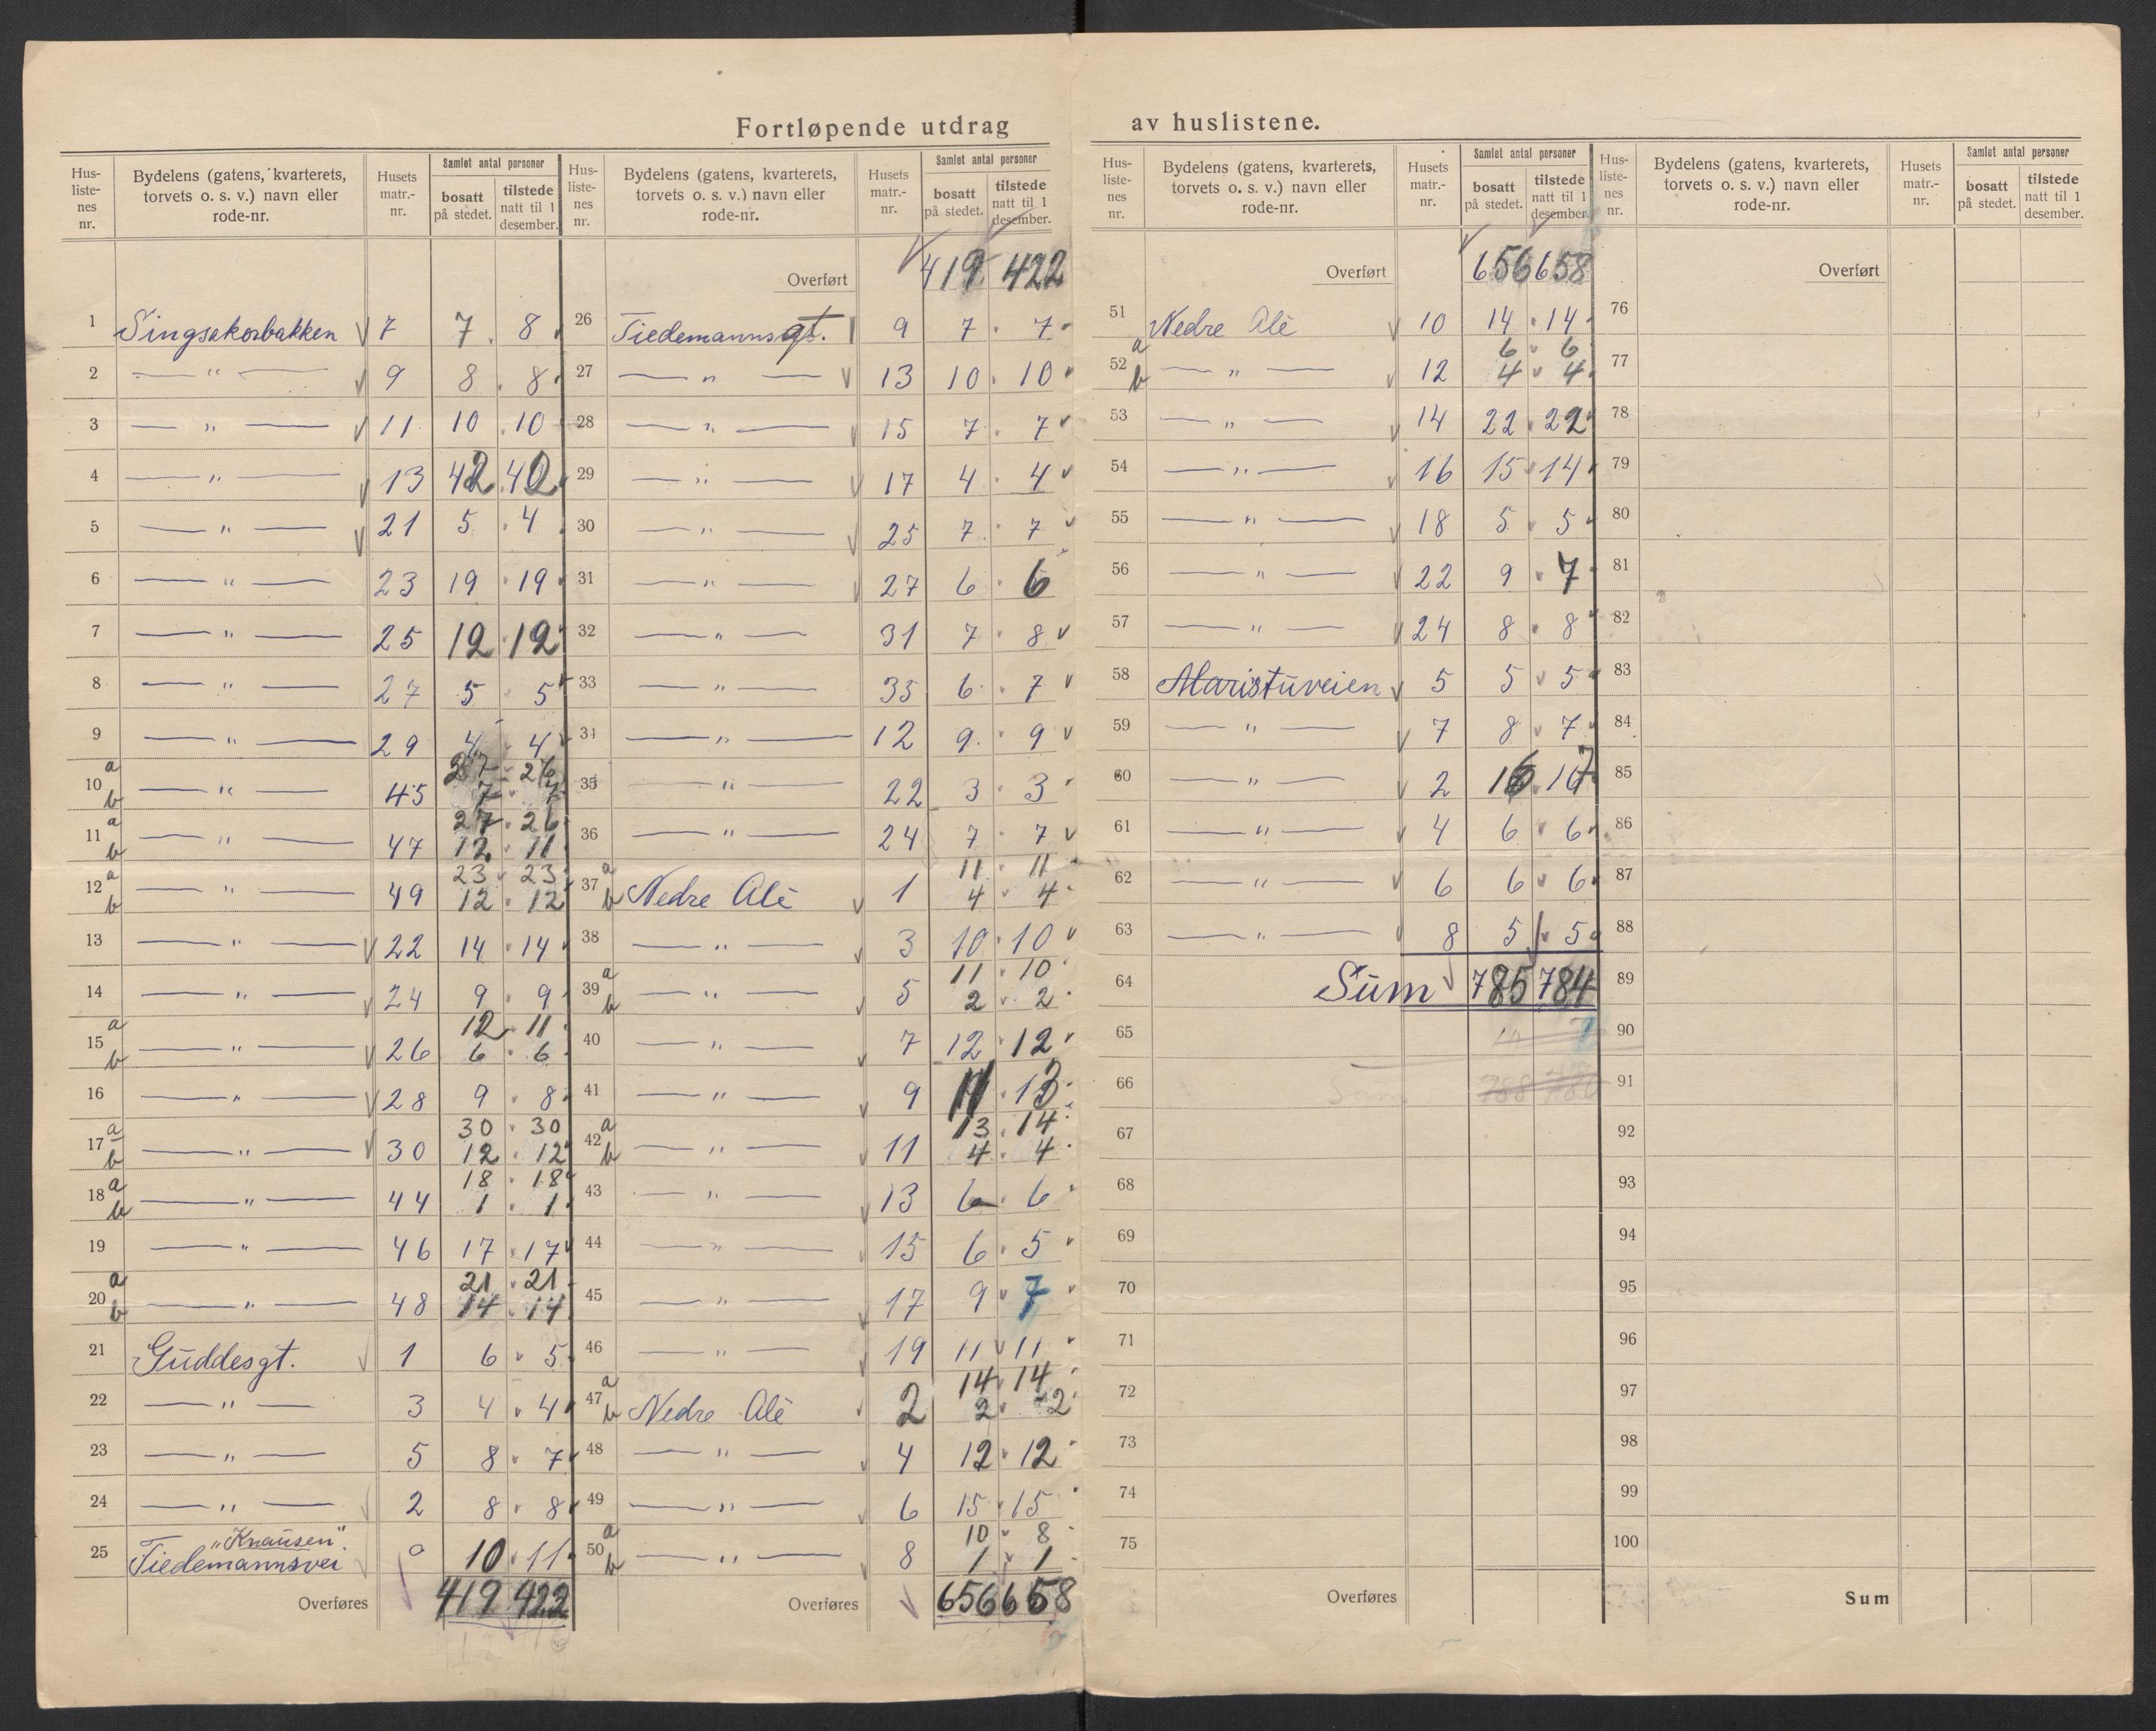 Fortløpende utdrag av huslistene.
Hus-listenes nr. | Bydelens (gatens, kvarterets, torvets o. s. v.) navn eller rode-nr. | Husets matr.-nr. | Samlet antal personer bosatt på stedet. | tilstede natt til 1 desember.
1 Singsakerbakken 7 7 8
2 —"— 9 8 8
3 —"— 11 10 10
4 —"— 13 42 42
5 —"— 21 5 4
6 —"— 23 19 19
7 —"— 25 12 12
8 —"— 27 5 5
9 —"— 29 4 4
10 a 27 26
b —"— 45 7 7
11 a 27 26
b —"— 47 12 11
12 a 23 23
b —"— 49 12 12
13 —"— 22 14 14
14 —"— 24 9 9
15 a 12 11
b —"— 26 6 6
16 —"— 28 9 8
17 a 30 30
b —"— 30 12 12
18 a 18 18
b —"— 44 1 1
19 —"— 46 17 17
20 a 21 21
b —"— 48 14 14
21 Guddesgt. 1 6 5
22 —"— 3 4 4
23 —"— 5 8 7
24 —"— 2 8 8
25 "Knausen". Tiedemannsvei 10 11
Overføres 419 422
Hus-listenes nr. | Bydelens (gatens, kvarterets, torvets o. s. v.) navn eller rode-nr. | Husets matr.-nr. | Samlet antal personer bosatt på stedet. | tilstede natt til 1 desember.
Overført 419 422
26 Tiedemannsgt. 9 7 7
27 —"— 13 10 10
28 —"— 15 7 7
29 —"— 17 4 4
30 —"— 25 7 7
31 —"— 27 6 6
32 —"— 31 7 8
33 —"— 35 6 7
34 —"— 12 9 9
35 —"— 22 3 3
36 —"— 24 7 7
37 a 11 11
b Nedre Alè 1 4 4
38 —"— 3 10 10
39 a 11 10
b —"— 5 2 2
40 —"— 7 12 12
41 —"— 9 11 13
42 a 13 14
b —"— 11 4 4
43 —"— 13 6 6
44 —"— 15 6 5
45 —"— 17 9 7
46 —"— 19 11 11
47 a 14 14
b Nedre Alè 2 2 2
48 —"— 4 12 12
49 —"— 6 15 15
50 a 10 8
b —"— 8 1 1
Overføres 656 658
Hus-listenes nr. | Bydelens (gatens, kvarterets, torvets o. s. v.) navn eller rode-nr. | Husets matr.-nr. | Samlet antal personer bosatt på stedet. | tilstede natt til 1 desember.
Overført 656 658
51 Nedre Alè 10 14 14
52 a 6 6
b —"— 12 4 4
53 —"— 14 22 22
54 —"— 16 15 14
55 —"— 18 5 5
56 —"— 22 9 7
57 —"— 24 8 8
58 Maristuveien 5 5 5
59 —"— 7 8 7
60 —"— 2 16 17
61 —"— 4 6 6
62 —"— 6 6 6
63 —"— 8 5 5
64 Sum 785 784
65
66 Sum
67
68
69
70
71
72
73
74
75
Overføres
Hus-listenes nr. | Bydelens (gatens, kvarterets, torvets o. s. v.) navn eller rode-nr. | Husets matr.-nr. | Samlet antal personer bosatt på stedet. | tilstede natt til 1 desember.
Overført
76
77
78
79
80
81
82
83
84
85
86
87
88
89
90
91
92
93
94
95
96
97
98
99
100
Sum